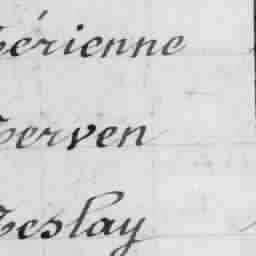 Térienne
Terven
Teslay